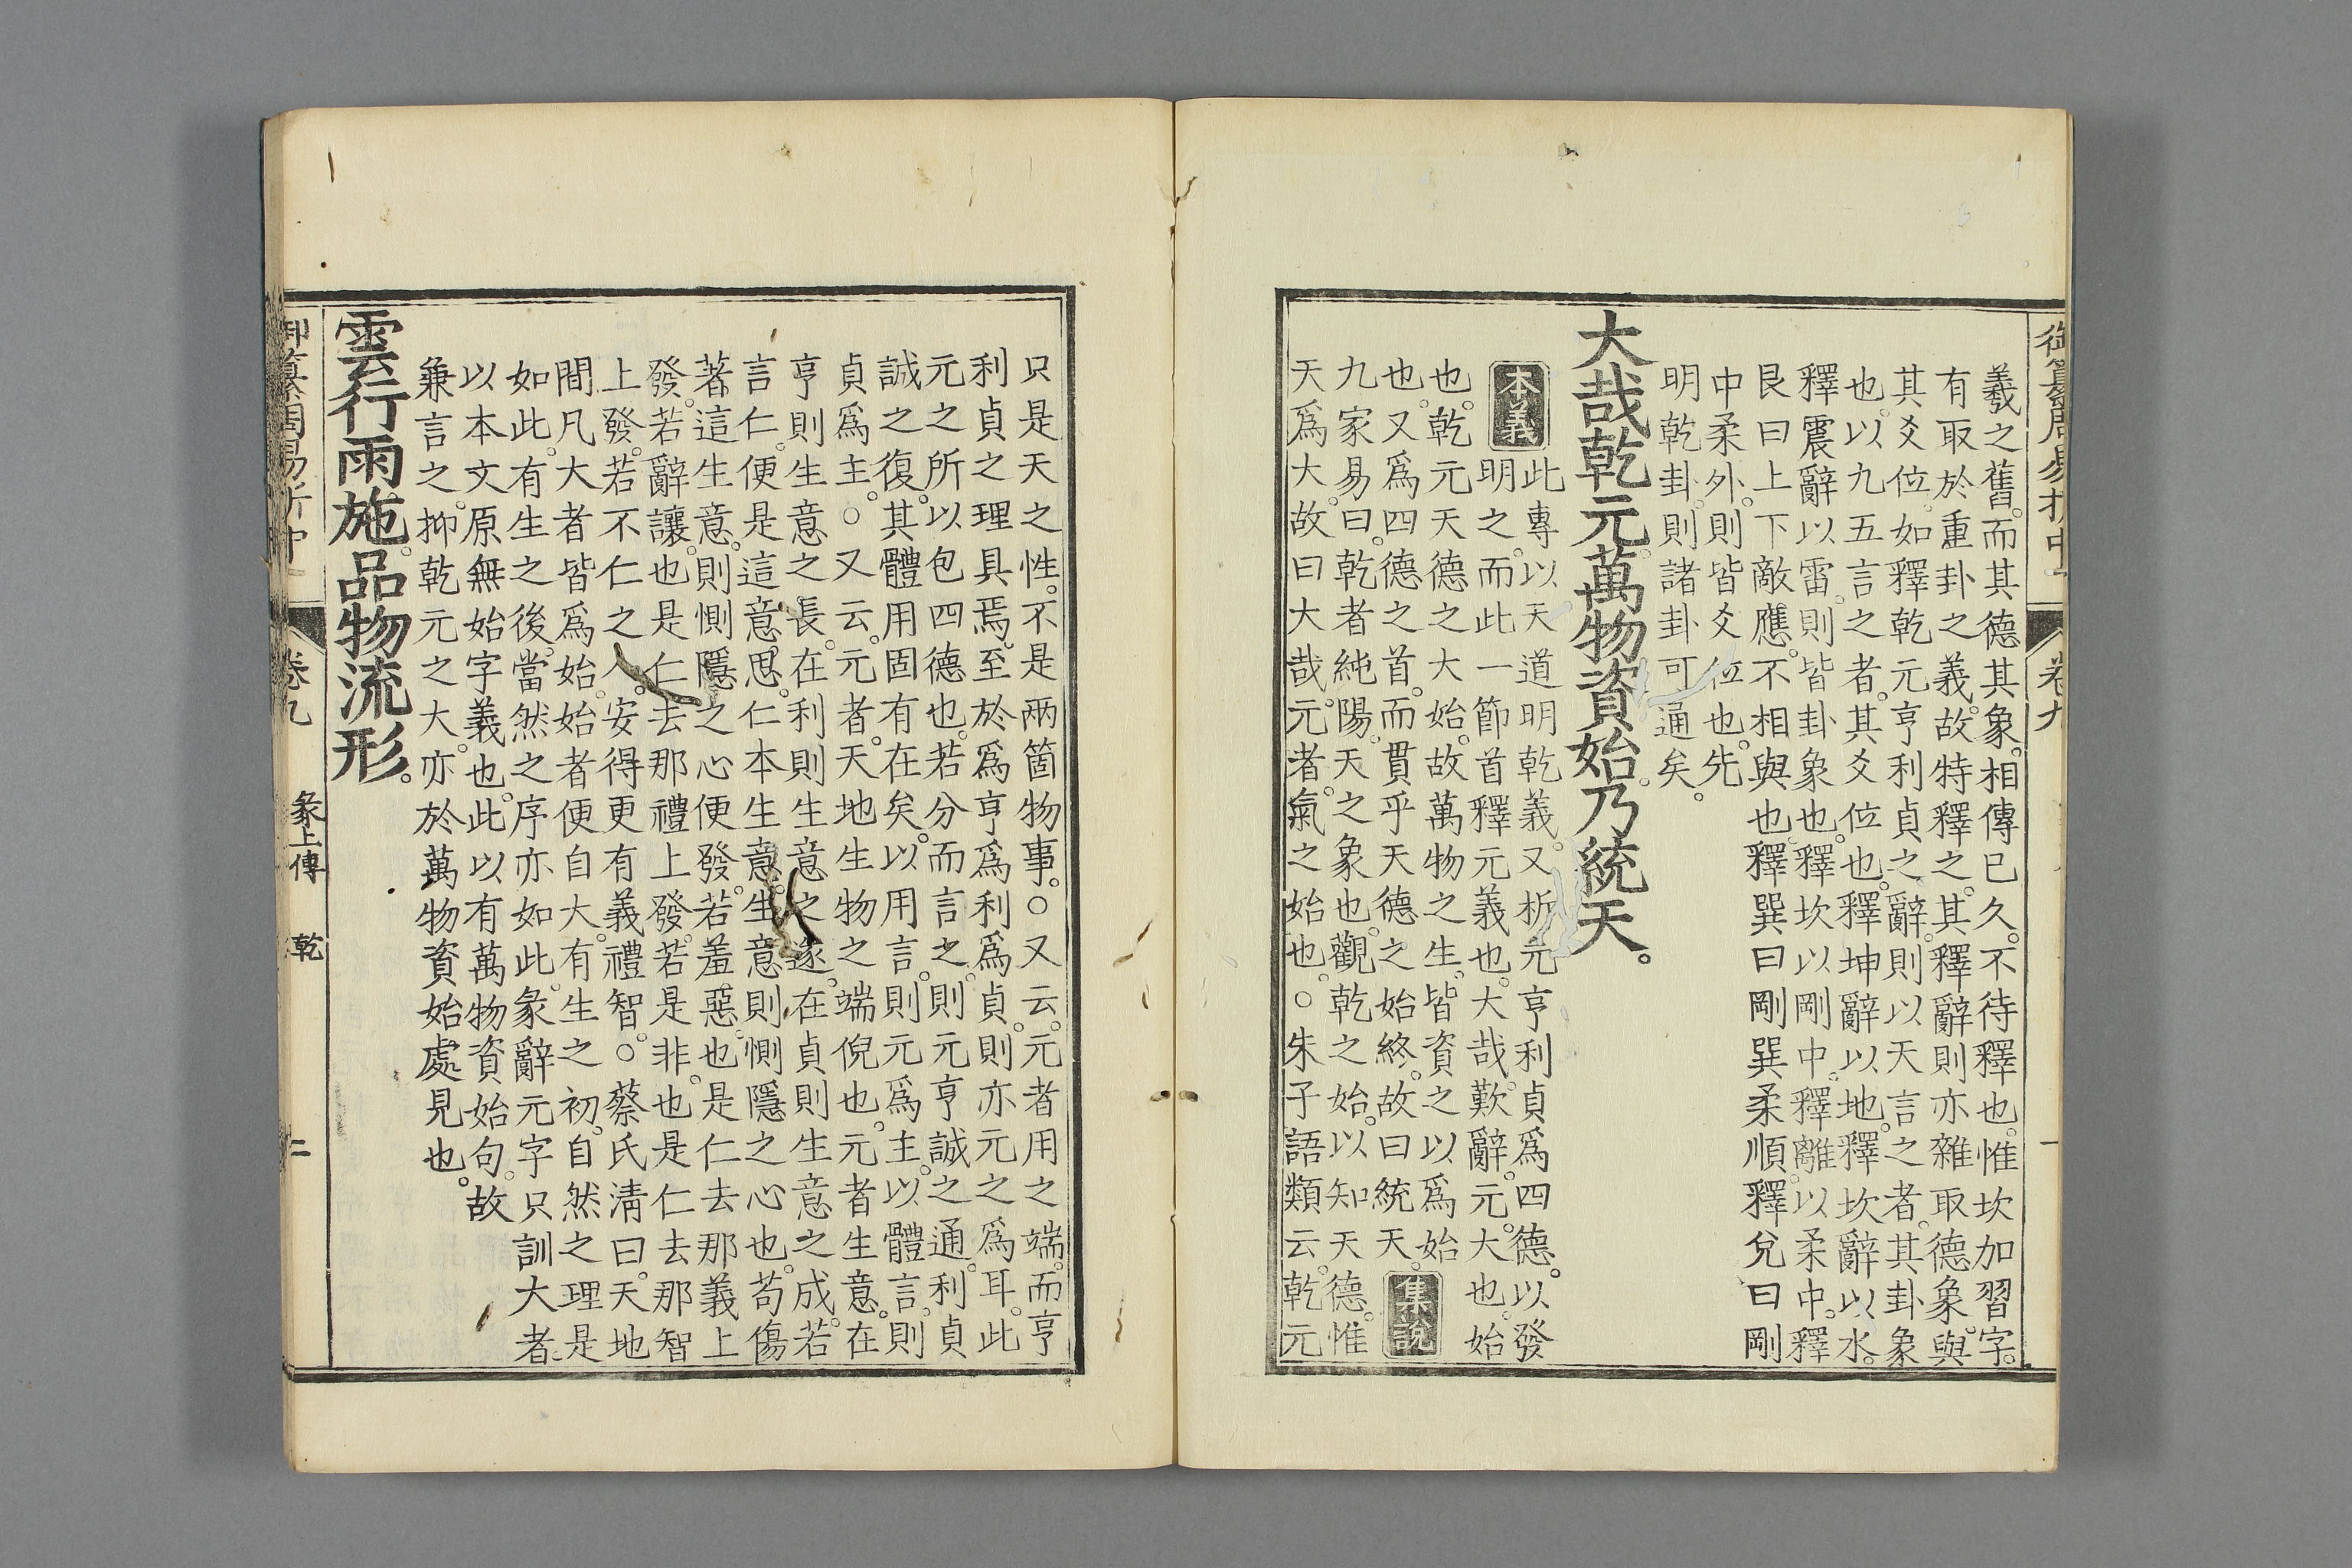 御纂周易折中
卷九
一
羲之舊。而其德其象。相傳已久。不待釋也。惟坎加習字。
有取於重卦之義。故特釋之。其釋辭則亦雜取德象。與
其爻位。如釋乾元亨利貞之辭。則以天言之者。其卦象
也。以九五言之者。其爻位也。釋坤辭以地。釋坎辭以水。
釋震辭以雷。則皆卦象也。釋坎以剛中。釋離以柔中。釋
艮曰上下敵應。不相與也。釋巽曰剛巽柔順。釋兌曰剛
中柔外。則皆爻位也。先
明乾卦。則諸卦可通矣。
大哉乾元。萬物資始。乃統天。
本義
此專以天道明乾義。又析元亨利貞爲四德。以發
明之。而此一節首釋元義也。大哉。歎辭。元。大也。始
也。乾元。天德之大始。故萬物之生。皆資之以爲始
也。又爲四德之首。而貫乎天德之始終。故曰統天。集說
九家易曰。乾者純陽。天之象也。觀乾之始。以知天德。惟
天爲大。故曰大哉。元者。氣之始也。○朱子語類云。乾元
只是天之性。不是兩箇物事。○又云。元者用之端。而亨
利貞之理具焉。至於爲亨爲利爲貞。則亦元之爲耳。此
元之所以包四德也。若分而言之。則元亨誠之通。利貞
誠之復。其體用固有在矣。以用言。則元爲主。以體言。則
貞爲主。○又云。元者。天地生物之端倪也。元者生意。在
亨則生意之長。在利則生意之遂。在貞則生意之成。若
言仁。便是這意思。仁本生意。生意則惻隱之心也。苟傷
著這生意。則惻隱之心便發。若羞惡。也是仁去那義上
發。若辭讓。也是仁去那禮上發。若是非。也是仁去那智
上發。若不仁之人。安得更有義禮智。○蔡氏淸曰。天地
間凡大者皆爲始。始者便自大。有生之初。自然之理是
如此。有生之後。當然之序亦如此。彖辭元字只訓大者。
以本文原無始字義也。此以有萬物資始句。故
兼言之。抑乾元之大。亦於萬物資始處見也。
雲行雨施。品物流形。
御纂周易折中
卷九
彖上傳　乾
二